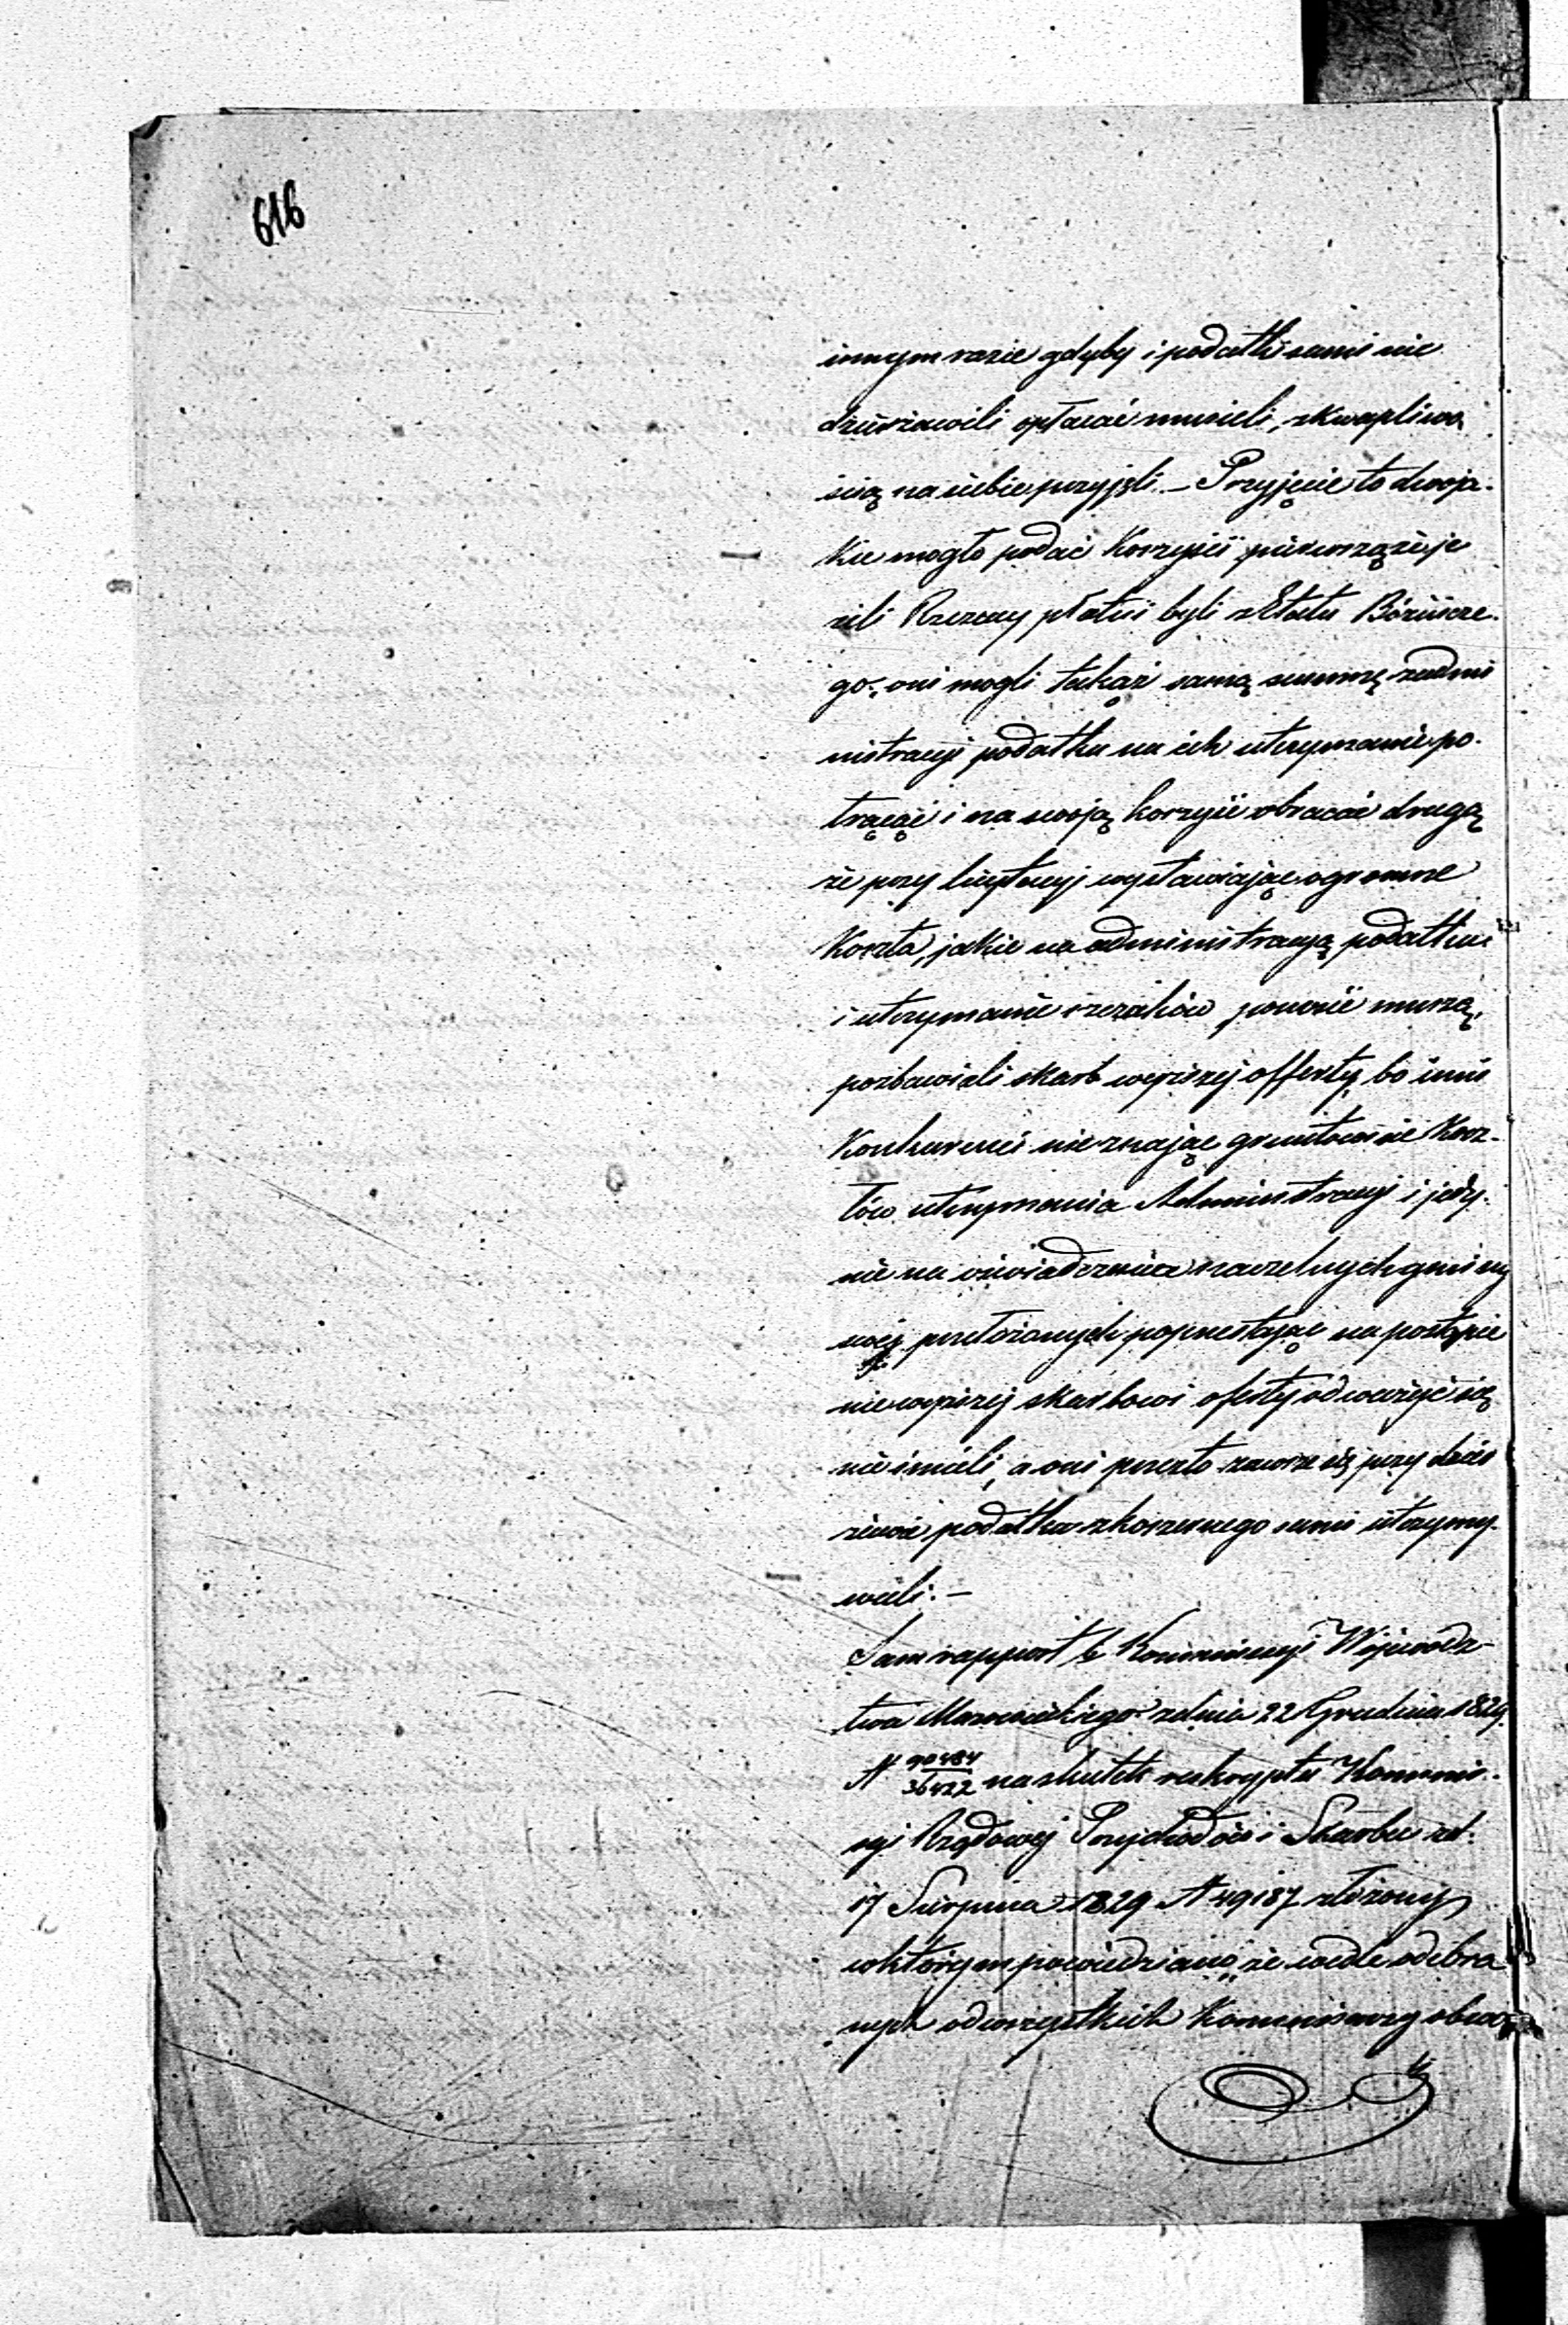 616
innym razie gdyby i podatki sami nie
dzierżawili opłacać musieli, skwapliwo
ścią na siebie przyjęli. – Przyięcie to dwoja-
kie mogło podać korzyści pierwszą że je
żeli Rzezacy płatni byli z Etatu Bóżnicze-
go, oni mogli takąż samą summę z admi
nistracyi podatku na ich utrzymanie po-
trącać i na swoją korzyść obracać drugą
że przy licytacyj wystawiając ogromne
koszta, jakie na administracyą podatku
i utrzymanie rzezaków ponosić muszą,
pozbawiali skarb wyższej offerty, bo inni
Konkurenci nie znając gruntownie kosz-
tów utrzymania Administracyi i jedy-
nie na oświadczenia naczelnych gminy
swej przełożonych poprzestając na postąpie
nie wyższej skarbowi oferty odważyć się
nie śmieli, a oni przeto zawsze się przy dzier
żawie podatku koszernego sami utrzymy-
wali. –
Sam rapport b. Kommissyi Wojewódz-
twa Mazowieckiego z dnia 22 Grudnia 1829
N 90484/36422 na skutek reskryptu Kommis-
syi Rządowej Przychodów i Skarbu z d.
17 Sierpnia 1829 N 49187 złożony
w którym powiedziano „że wedle odebra
nych od wszystkich Kommissarzy obwo